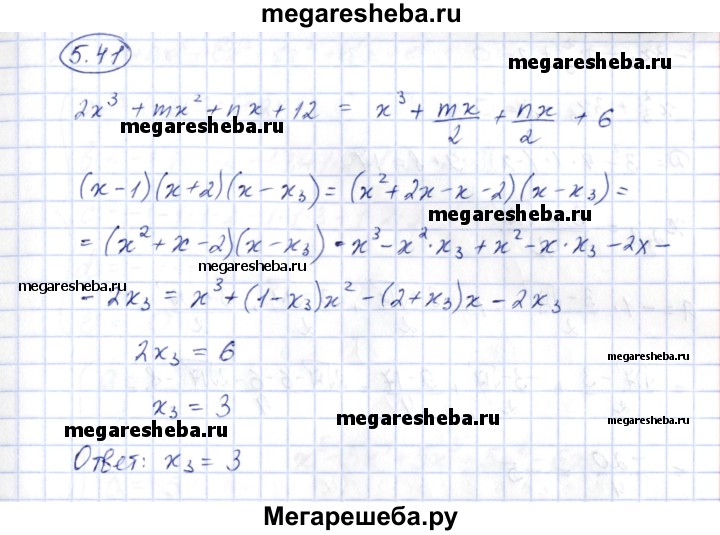 megaresheba.ru
5.41
megaresheba.ru
2x³ + mx² + nx + 12 = x³ + mx/2 + nx/2 + 6
megaresheba.ru
(x-1)(x+2)(x-x₃) = (x²+2x-x-2)(x-x₃) =
megaresheba.ru
= (x²+x-2)(x-x₃) = x³-x²·x₃+x²-x·x₃-2x-
megaresheba.ru
megaresheba.ru
- 2x₃ = x³+(1-x₃)x²-(2+x₃)x-2x₃
2x₃ = 6
megaresheba.ru
x₃ = 3
megaresheba.ru
megaresheba.ru
Ответ: x₃ = 3
Мегарешеба.ру